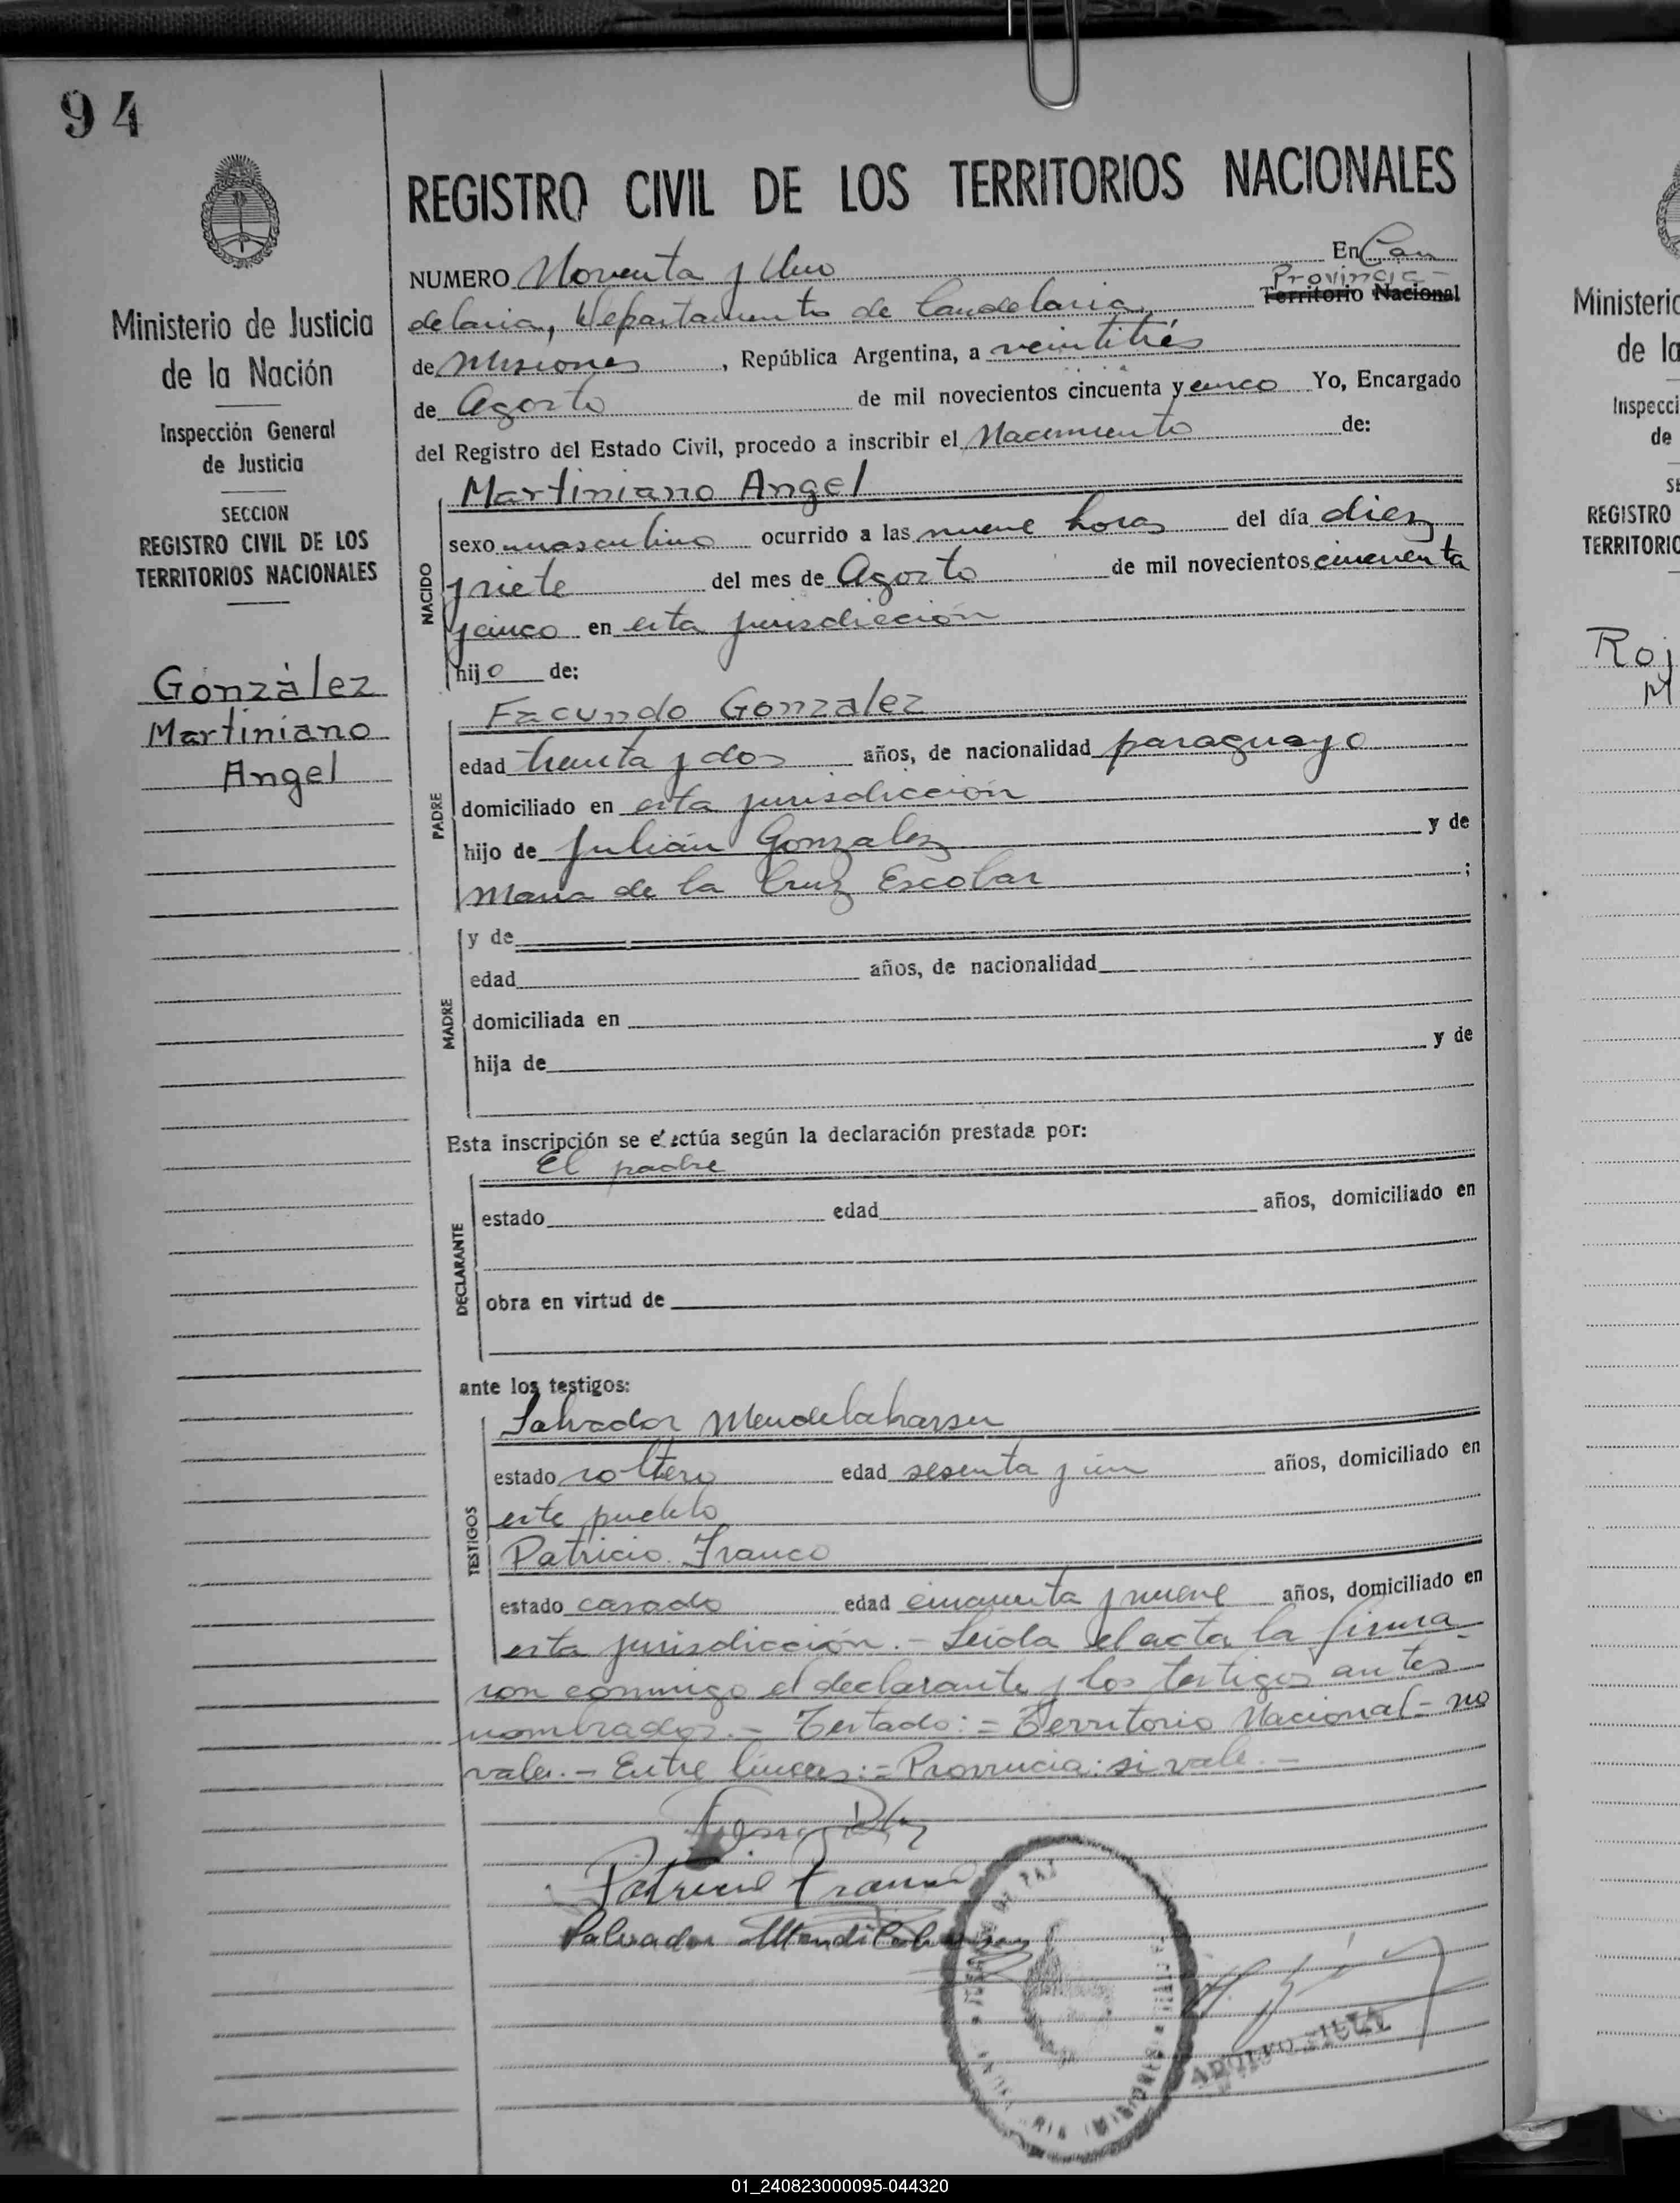 94
Ministerio de Justicia
de la Nación
Inspección General
de Justicia
SECCION
REGISTRO CIVIL DE LOS
TERRITORIOS NACIONALES
González
Martiniano
Angel
REGISTRO CIVIL DE LOS TERRITORIOS NACIONALES
NUMERO Noventa y Uno En Can
Provincia -
delaria, Departamento de Candelaria, Territorio Nacional
de Misiones, República Argentina, a veintitrés
de Agosto de mil novecientos cincuenta y cinco Yo, Encargado
del Registro del Estado Civil, procedo a inscribir el Nacimiento de:
Martiniano Angel
NACIDO
sexo masculino ocurrido a las nueve horas del día diez
y siete del mes de Agosto de mil novecientos cincuenta
y cinco en esta jurisdicción
hijo de:
Facundo Gonzalez
PADRE
edad treinta y dos años, de nacionalidad paraguayo
domiciliado en esta jurisdicción
hijo de Julián Gonzalez y de
Maria de la Cruz Escobar ;
MADRE
y de
edad años, de nacionalidad
domiciliada en
hija de y de
Esta inscripción se efectúa según la declaración prestada por:
El padre
DECLARANTE
estado edad años, domiciliado en
obra en virtud de
ante los testigos:
Salvador Mendelaharsu
TESTIGOS
estado soltero edad sesenta y un años, domiciliado en
este pueblo
Patricio Franco
estado casado edad cincuenta y nueve años, domiciliado en
esta jurisdicción.- Leída el acta la firma
ron conmigo el declarante y los testigos antes
nombrados.- Testado:= Territorio Nacional= no
vale.- Entre líneas:= Provincia: si vale.-
Patricio Franco
Salvador
DE PAZ
MISIONES
ADOLFO
Ministerio
de la
Inspecci
de
SE
REGISTRO
TERRITORIO
Roj
M
01_240823000095-044320